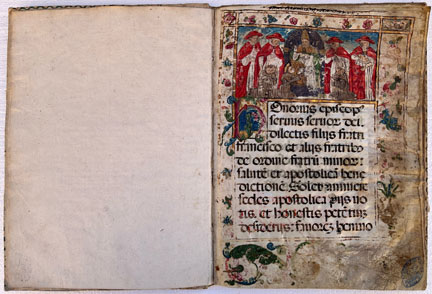 Onorius episcopꝰ
seruus seruoꝝ dei
dilectis filijs fratri
francisco et alijs fratribꝰ
de ordine fratrū minoꝝ
salutē et apostolicā bene
dictionē. Solet annuere
sedes apostolica pijs uo
tis. et honestis petentiū
desiderijs fauorē beniuo